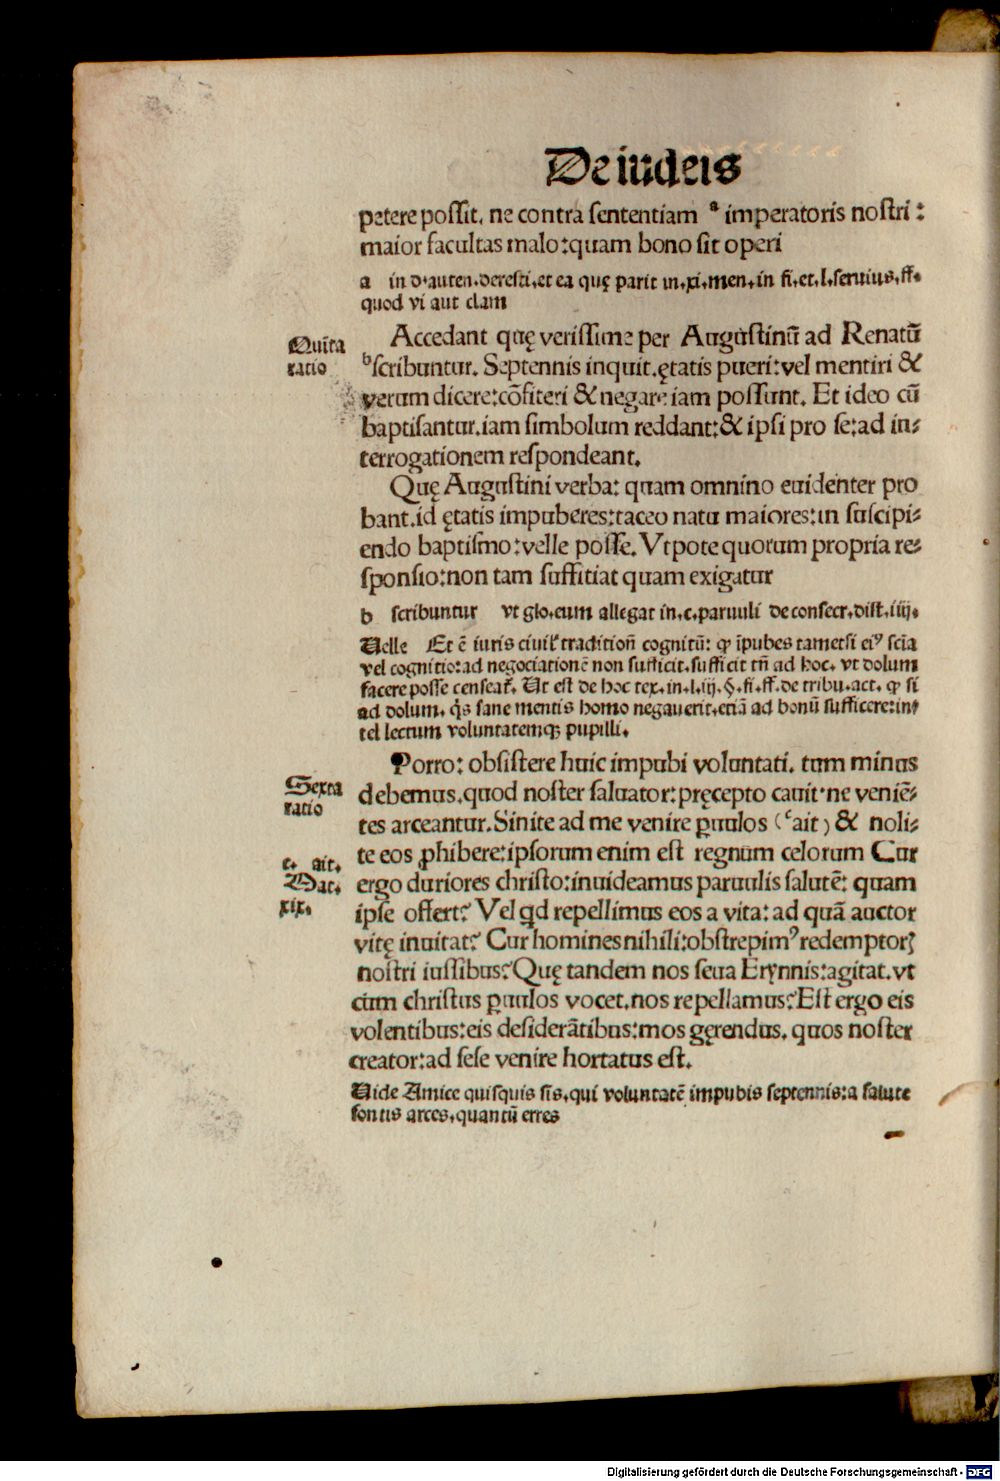 De iudeis
petere possit, ne contra sententiam ª imperatoris nostri :
maior facultas malo:quam bono sit operi
a in d.auten.deresti.et ea quę parit in.xi.men.in fi.et.l.seruius.ff.
quod vi aut clam
Quīta
ratio
Accedant quę verissime per Augustinū ad Renatū
ᵇscribuntur. Septennis inquit.ętatis pueri:vel mentiri &
verum dicere:cōfiteri & negare iam possunt. Et ideo cū
baptisantur.iam simbolum reddant:& ipsi pro se:ad in⸗
terrogationem respondeant.
Quę Augustini verba: quam omnino euidenter pro
bant.id ętatis impuberes:taceo natu maiores:in suscipi⸗
endo baptismo:velle posse. Vtpote quorum propria re⸗
sponsio:non tam suffitiat quam exigatur
b scribuntur vt glo.cum allegat in.c.paruuli de consecr.dist.iiij.
Uelle Et ē iuris ciuil' tradition̄ cognitū: ꝙ īpubes tametsi eiꝰ scīa
vel cognitio:ad negociationē non sufficit.sufficit tn̄ ad hoc. vt dolum
facere posse censeat̄. Ut est de hoc tex.in.l.iij.§.fi.ff.de tribu.act. ꝙ si
ad dolum. q̇s sane mentis homo negauerit.etiā ad bonū sufficere:in⸗
tellectum voluntatemqꝫ pupilli.
Sexta
ratio
Porro: obsistere huic impubi voluntati. tum minus
debemus.quod noster saluator:pręcepto cauit.ne veniē⸗
tes arceantur. Sinite ad me venire ꝑuulos (ᶜait) & noli⸗
c. ait.
Mat.
xix.
te eos ꝓhibere:ipsorum enim est regnum celorum Cur
ergo duriores christo:inuideamus paruulis salutē: quam
ipse offert? Vel qd repellimus eos a vita: ad quā auctor
vitę inuitat? Cur homines nihili:obstrepimꝰ redemptorꝭ
nostri iussibus? Quę tandem nos seua Erynnis:agitat.vt
cum christus ꝑuulos vocet.nos repellamus? Est ergo eis
volentibus:eis desiderātibus:mos gęrendus. quos noster
creator:ad sese venire hortatus est.
Uide Amice quisquis sis.qui voluntatē impubis septennis:a salute
fontis arces.quantū erres
Digitalisierung gefördert durch die Deutsche Forschungsgemeinschaft - DFG